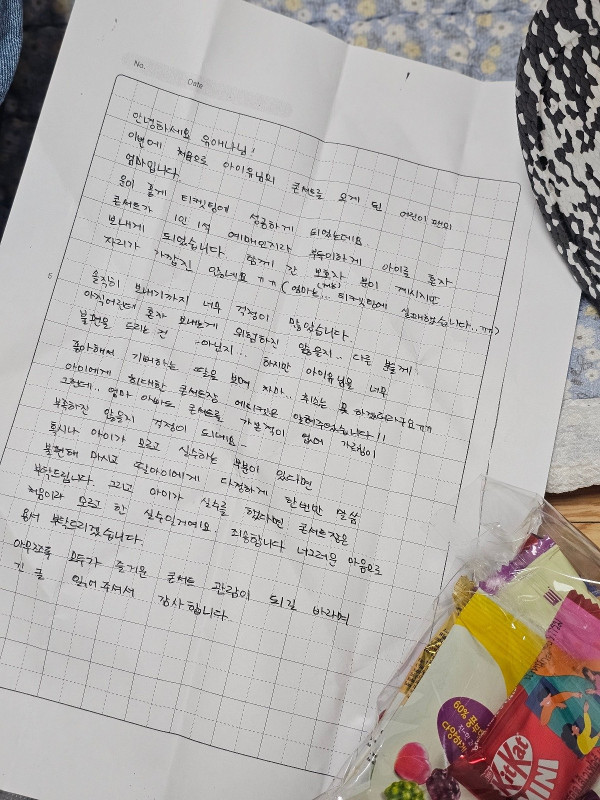 No.
Date
안녕하세요 유애나님!
이번에 처음으로 아이유님의 콘서트를 오게 된 어린이 팬의
엄마입니다.
운이 좋게 티켓팅에 성공하게 되었는데요.
콘서트가 1인 1석 예매인지라 부득이하게 아이를 혼자
보내게 되었습니다. 함께 간 보호자 분이 계시지만
자리가 가깝진 않네요 ㅠㅠ (엄마는... 티켓팅에 실패했습니다..ㅠㅠ)
5
솔직히 보내기까지 너무 걱정이 많았습니다
아직어린데 혼자 보내는게 위험하진 않을지.. 다른 분들께
불편을 드리는 건 아닌지.. 하지만 아이유님을 너무
좋아해서 기뻐하는 딸을 보며 차마.. 취소는 못 하겠더라구요ㅠㅠ
아이에게 최대한 콘서트장 에티켓은 알려주었습니다!!
그런데.. 엄마 아빠도 콘서트를 가본적이 없어 가르침이
부족하진 않을지 걱정이 되네요~
혹시나 아이가 모르고 실수하는 부분이 있다면
불편해 마시고 딸아이에게 다정하게 한번만 말씀
부탁드립니다 그리고 아이가 실수를 했다면 콘서트장은
처음이라 모르고 한 실수일거예요 죄송합니다 너그러운 마음으로
용서 부탁드리겠습니다.
아무쪼록 모두가 즐거운 콘서트 관람이 되길 바라며
긴 글 읽어주셔서 감사합니다.
60%
KitKat
MINI